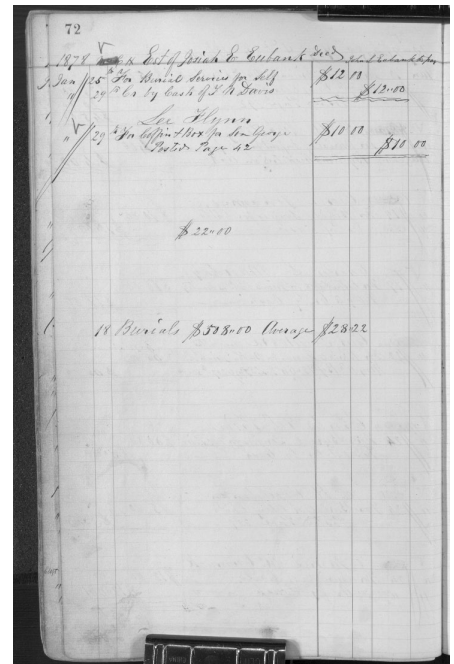 72
1878 Est of Josiah E Eubank Died
Jan 25 For Burial Services for Self $12 00
" 29 Cr by Cash of T N Davis $12=00
Lee Flynn
" 29 For Coffin & Box for Son George $10 00
Posted Page 42 $10 00
$22=00
18 Burials $508=00 Average $28=22